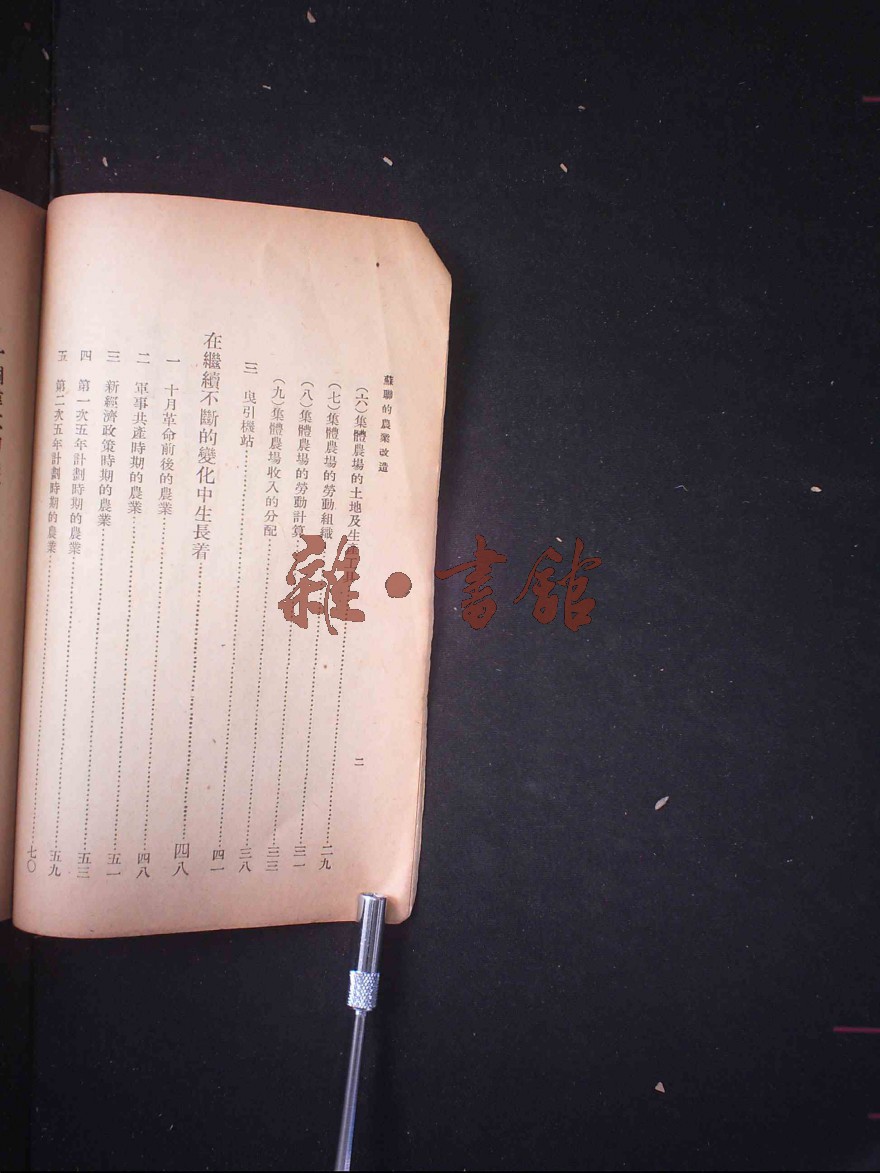 蘇聯的農業改造
二
(六)集體農場的土地及生產……二九
(七)集體農場的勞動組織……三一
(八)集體農場的勞動計算……三三
(九)集體農場收入的分配……三八
三 曳引機站……四一
在繼續不斷的變化中生長着……四八
一 十月革命前後的農業……四八
二 軍事共產時期的農業……五一
三 新經濟政策時期的農業……五三
四 第一次五年計劃時期的農業……五九
五 第二次五年計劃時期的農業……七〇
雜·書館